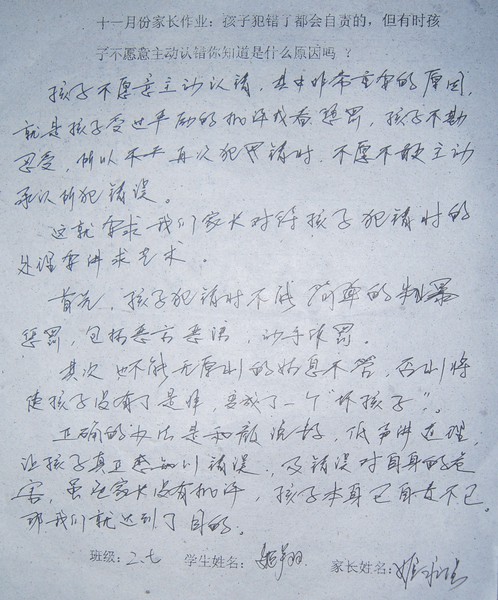 十一月份家长作业：孩子犯错了都会自责的，但有时孩
子不愿意主动认错你知道是什么原因吗？
孩子不愿意主动认错，其中非常重要的原因，
就是孩子受过严励的批评或者惩罚，孩子不勘
忍受，所以 再次犯错时，不愿不敢主动
承认所犯错误。
这就要求我们家长对待孩子犯错时的
处理要讲求艺术。
首先，孩子犯错时不能简单的 暴
惩罚，包括恶言恶语，动手体罚。
其次也不能无原则的姑息不管，否则将
使孩子没有了是非，变成了一个"坏孩子"。
正确的办法是和颜悦色，低声讲道理，
让孩子真正意识到错误，及错误对自身的危
害，虽然家长没有批评，孩子本身已自责不已，
那我们就达到了目的。
班级：二.七 学生姓名： 家长姓名：